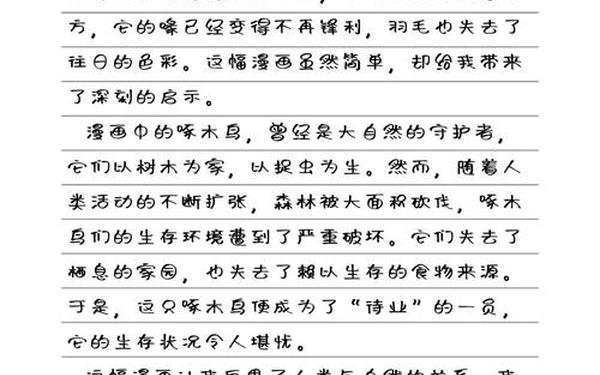 方，它的喙已经变得不再锋利，羽毛也失去了
往日的色彩。这幅漫画虽然简单，却给我带来
了深刻的启示。
漫画中的啄木鸟，曾经是大自然的守护者，
它们以树木为家，以捉虫为生。然而，随着人
类活动的不断扩张，森林被大面积砍伐，啄木
鸟们的生存环境遭到了严重破坏。它们失去了
栖息的家园，也失去了赖以生存的食物来源。
于是，这只啄木鸟便成为了“待业”的一员，
它的生存状况令人堪忧。
这幅漫画让我反思了人类与自然的关系。我